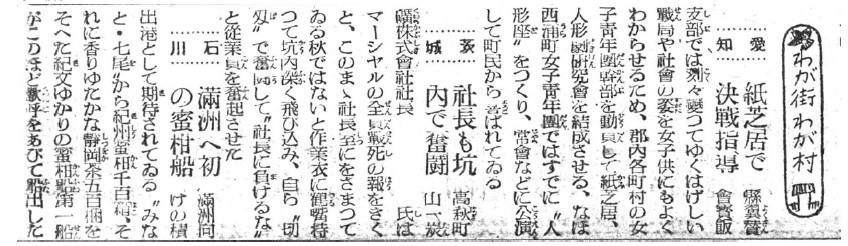 わが街わが村
愛知 紙芝居で決戦指導 縣翼賛會寶飯
支部では刻々變つてゆくはげしい
戰局や社會の姿を女子供にもよく
わからせるため、郡内各町村の女
子青年團幹部を動員して紙芝居、
人形劇研究會を結成させる、なほ
西浦町女子青年團ではすでに〝人
形座〟をつくり、常會などに公演
して町民から喜ばれてゐる
茨城 社長も坑内で奮闘 高萩町山一炭
礦株式會社社長 氏は
マーシヤルの全員戰死の報をきく
と、このまゝ社長室にをさまつて
ゐる秋ではないと作業衣に鶴嘴持
つて坑内深く飛び込み、自ら〝切
羽〟で奮闘して〝社長に負けるな〟
と從業員を奮起させた
石川 滿洲へ初の蜜柑船 滿洲向けの積
出港として期待されてゐる〝みな
と・七尾〟から紀州蜜柑千百箱、そ
れに香りゆたかな靜岡茶五百梱を
そへた紀文ゆかりの蜜柑船第一船
がこのほど歡呼をあびて船出した